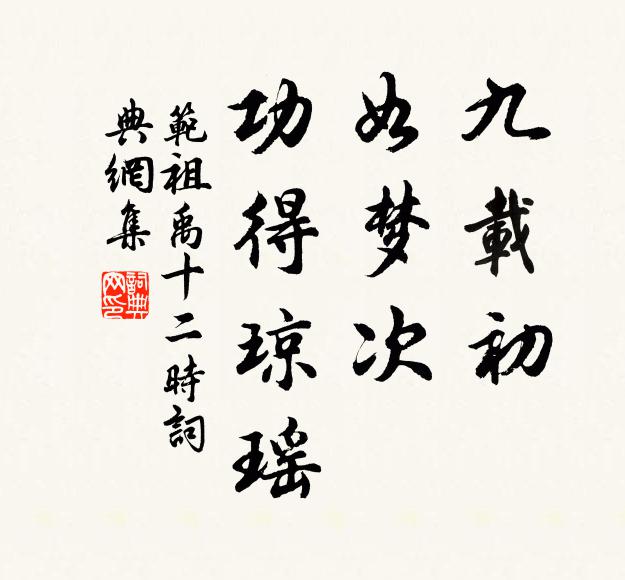 九載初
如梦次
功得琼瑶
範祖禹十二時詞
典網集
詞典網印